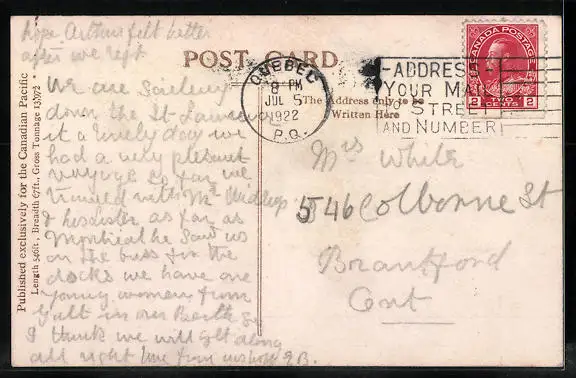 hope Arthur felt better
after we left
We are Sailing
down the St Lawrence
it a lovely day we
had a very plesent
voyage so far we
traveled with Mr
& her sister as far as
Montreal he saw us
on the buss for the
docks we have one
young women from
Galt in our Berth
I think we will get along
all right love from E.B.
Published exclusively for the Canadian Pacific
Length 546ft., Breadth 67ft., Gross Tonnage
POST CARD
The Address only to be
Written Here
QUEBEC
8 PM
JUL 5
1922
P.Q.
ADDRESS
YOUR MAIL
STREET
AND NUMBER
CANADA POSTAGE
2 TWO CENTS 2
Mrs White
546 Colborne St
Brantford
Ont